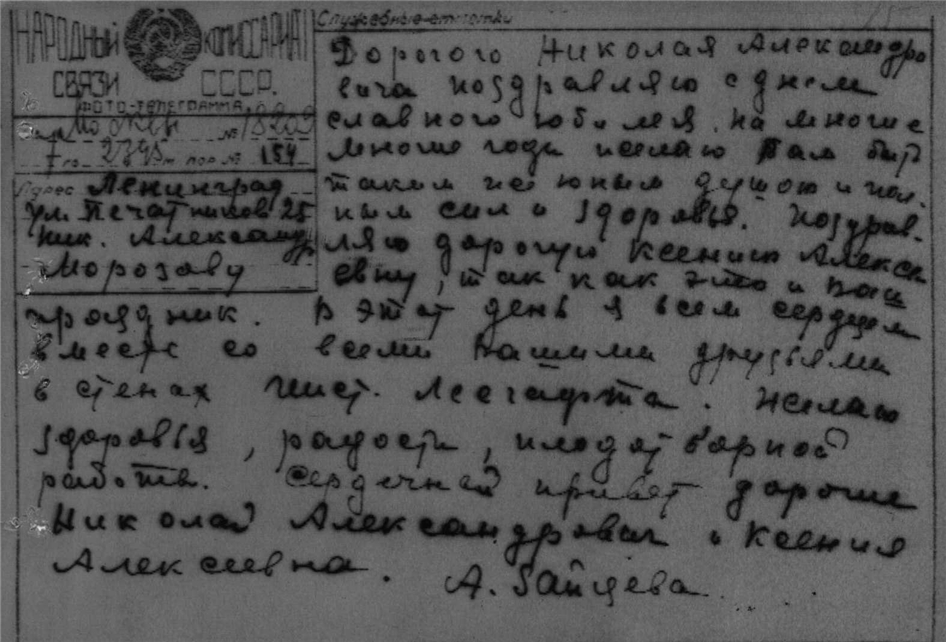 Служебные отметки
НАРОДНЫЙ КОМИССАРИАТ
СВЯЗИ СССР.
ФОТО-ТЕЛЕГРАММА
№ 18203
пор. № 154
Адрес Ленинград
ул. Печатников 25
Ник. Александр.
Морозову
Дорогого Николая Александро
вича поздравляю с днем
славного юбилея, на многие
многие годы желаю Вам быть
таким же юным душою и пол.
ным сил и здоровья. Поздрав.
ляю дорогую Ксению Алексе
евну, так как это и ваш
праздник. В этот день я всем сердцем
вместе со всеми вашими друзьями
в стенах Инст. Лесгафта. Желаю
здоровья, радости, плодотворной
работы. Сердечный привет дорогие
Николай Александрович и Ксения
Алексеевна. А. Зайцева